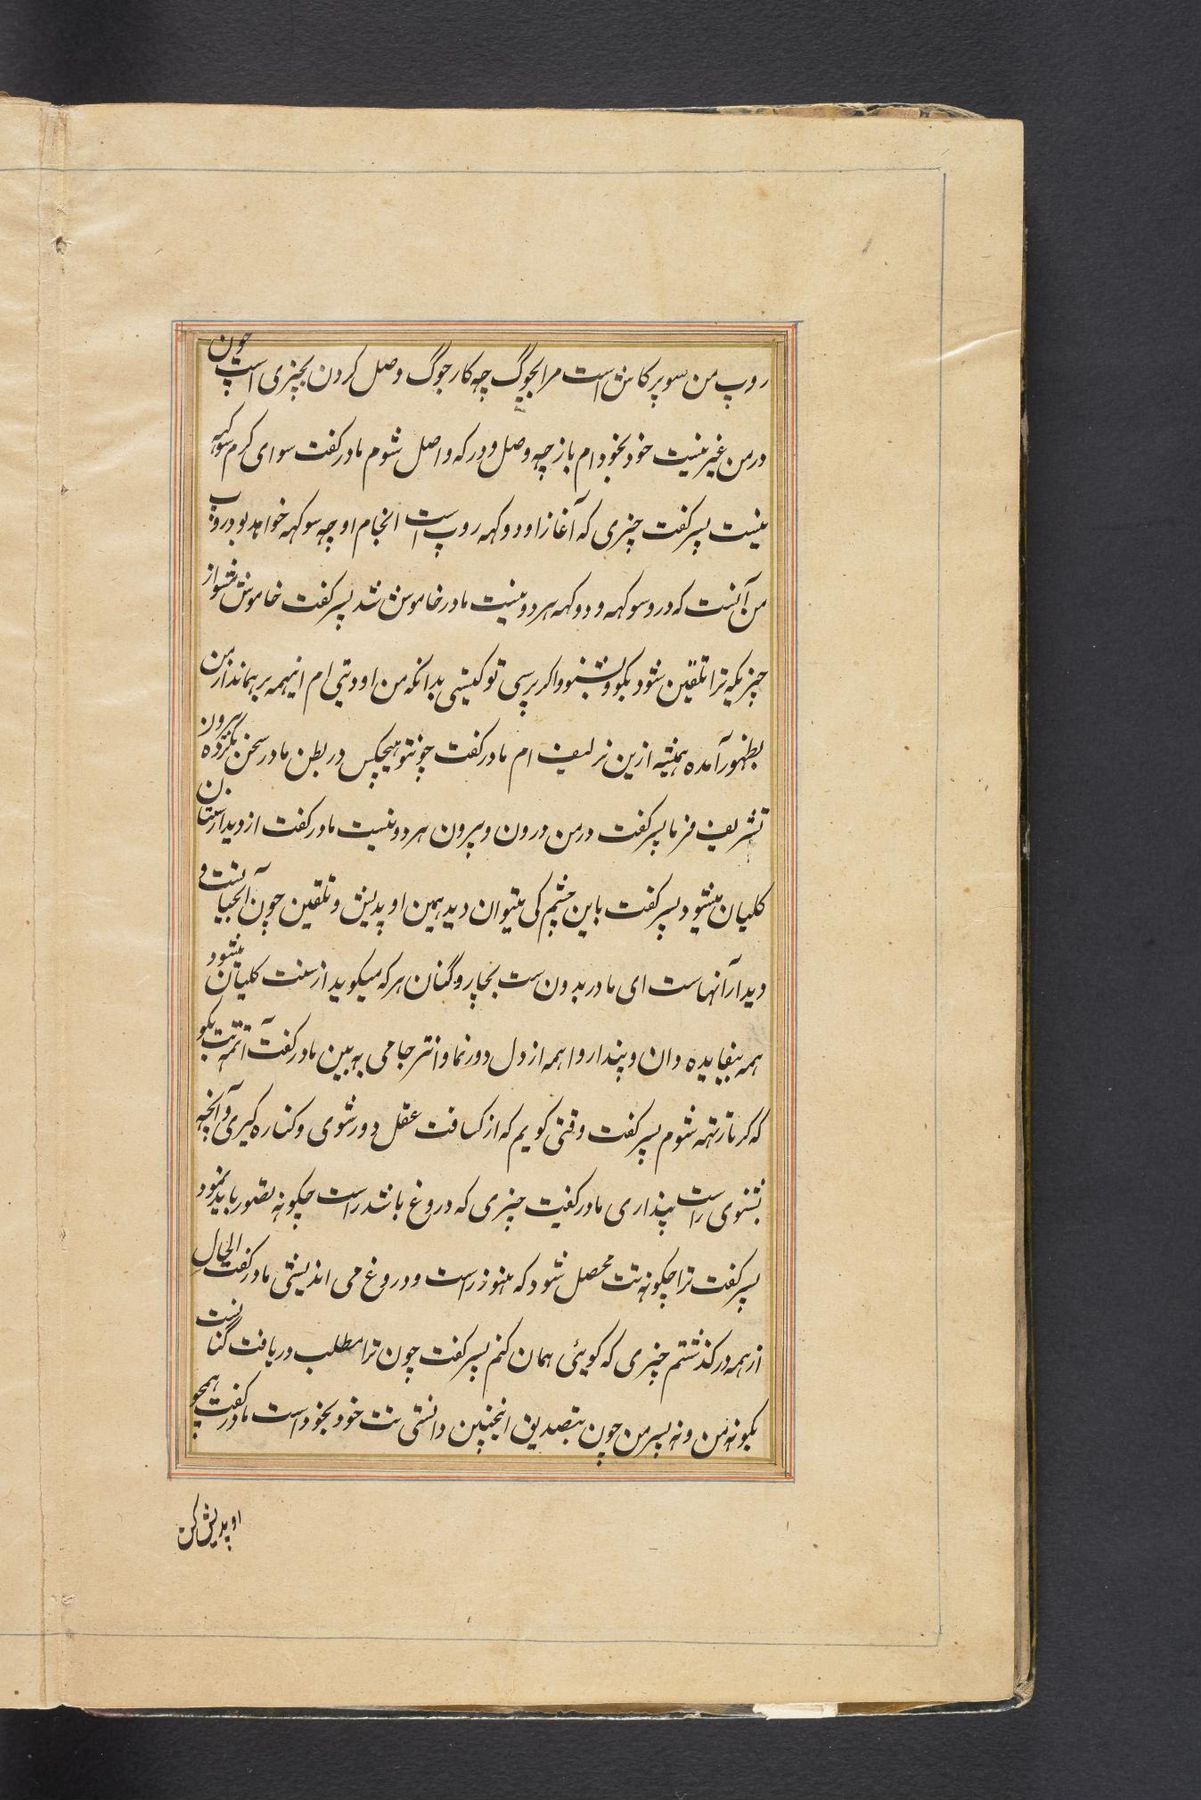 روپ من سوپرکاش است مرا بجوگ چه کار جوگ وصل کردن بچیزی است چون
در من غیر نیست خود بخود ام باز چه وصل و در که واصل شوم مادر گفت سوای کرم سوکهه
نیست پسر گفت چیزی که آغاز او دوکهه روپ است انجام او چه سوکهه خواهد بود روپ
من آنست که درو سوکهه و دوکهه هر دو نیست مادر خاموش شد پسر گفت خاموش مشو از
چیزیکه ترا تلقین شود بگو و بشنو و اگر پرسی تو کیستی بدانکه من اودیتی ام اینهمه برهماند از من
بظهور آمده همیشه ازین نرلیف ام مادر گفت چونتو هیچکس در بطن مادر سخن نکرده بیرون
تشریف فرما پسر گفت در من درون و بیرون هر دو نیست مادر گفت از دیدار سنتان
کلیان میشود پسر گفت باین چشم کی میتوان دید همین اوپدیش و تلقین چون آبحیات
دیدار آنهاست ای مادر بدون ست بچار و گنان هر که میگوید از سنت کلیان میشود
همه بیفایده دان و پندار و اهمه از دل دور نما و انترجامی به بین مادر گفت آتمه تت بگو
که کرتارتهه شوم پسر گفت وقتی گویم که از کسافت عقل دور شوی و کناره گیری و آنچه
بشنوی راست پنداری مادر گفت چیزی که دروغ باشد راست چگونه تصور باید نمود
پسر گفت ترا چگونه تت محصل شود که هنوز راست و دروغ می اندیشی مادر گفت الحال
از همه در گذشتم چیزی که گوئی همان کنم پسر گفت چون ترا مطلب دریافت گنانست
بگو نه من و نه پسر من چون بتصدیق اینچنین دانستی تت خود بخود است مادر گفت همچو
اوپدیش کن